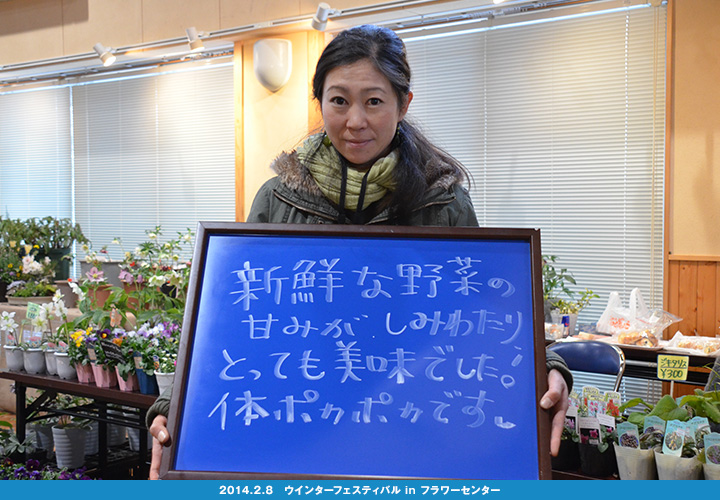 新鮮な野菜の
甘みが、しみわたり
とっても美味でした!
体ポカポカです。
ジキタリス
¥300
2014.2.8 ウインターフェスティバル in フラワーセンター